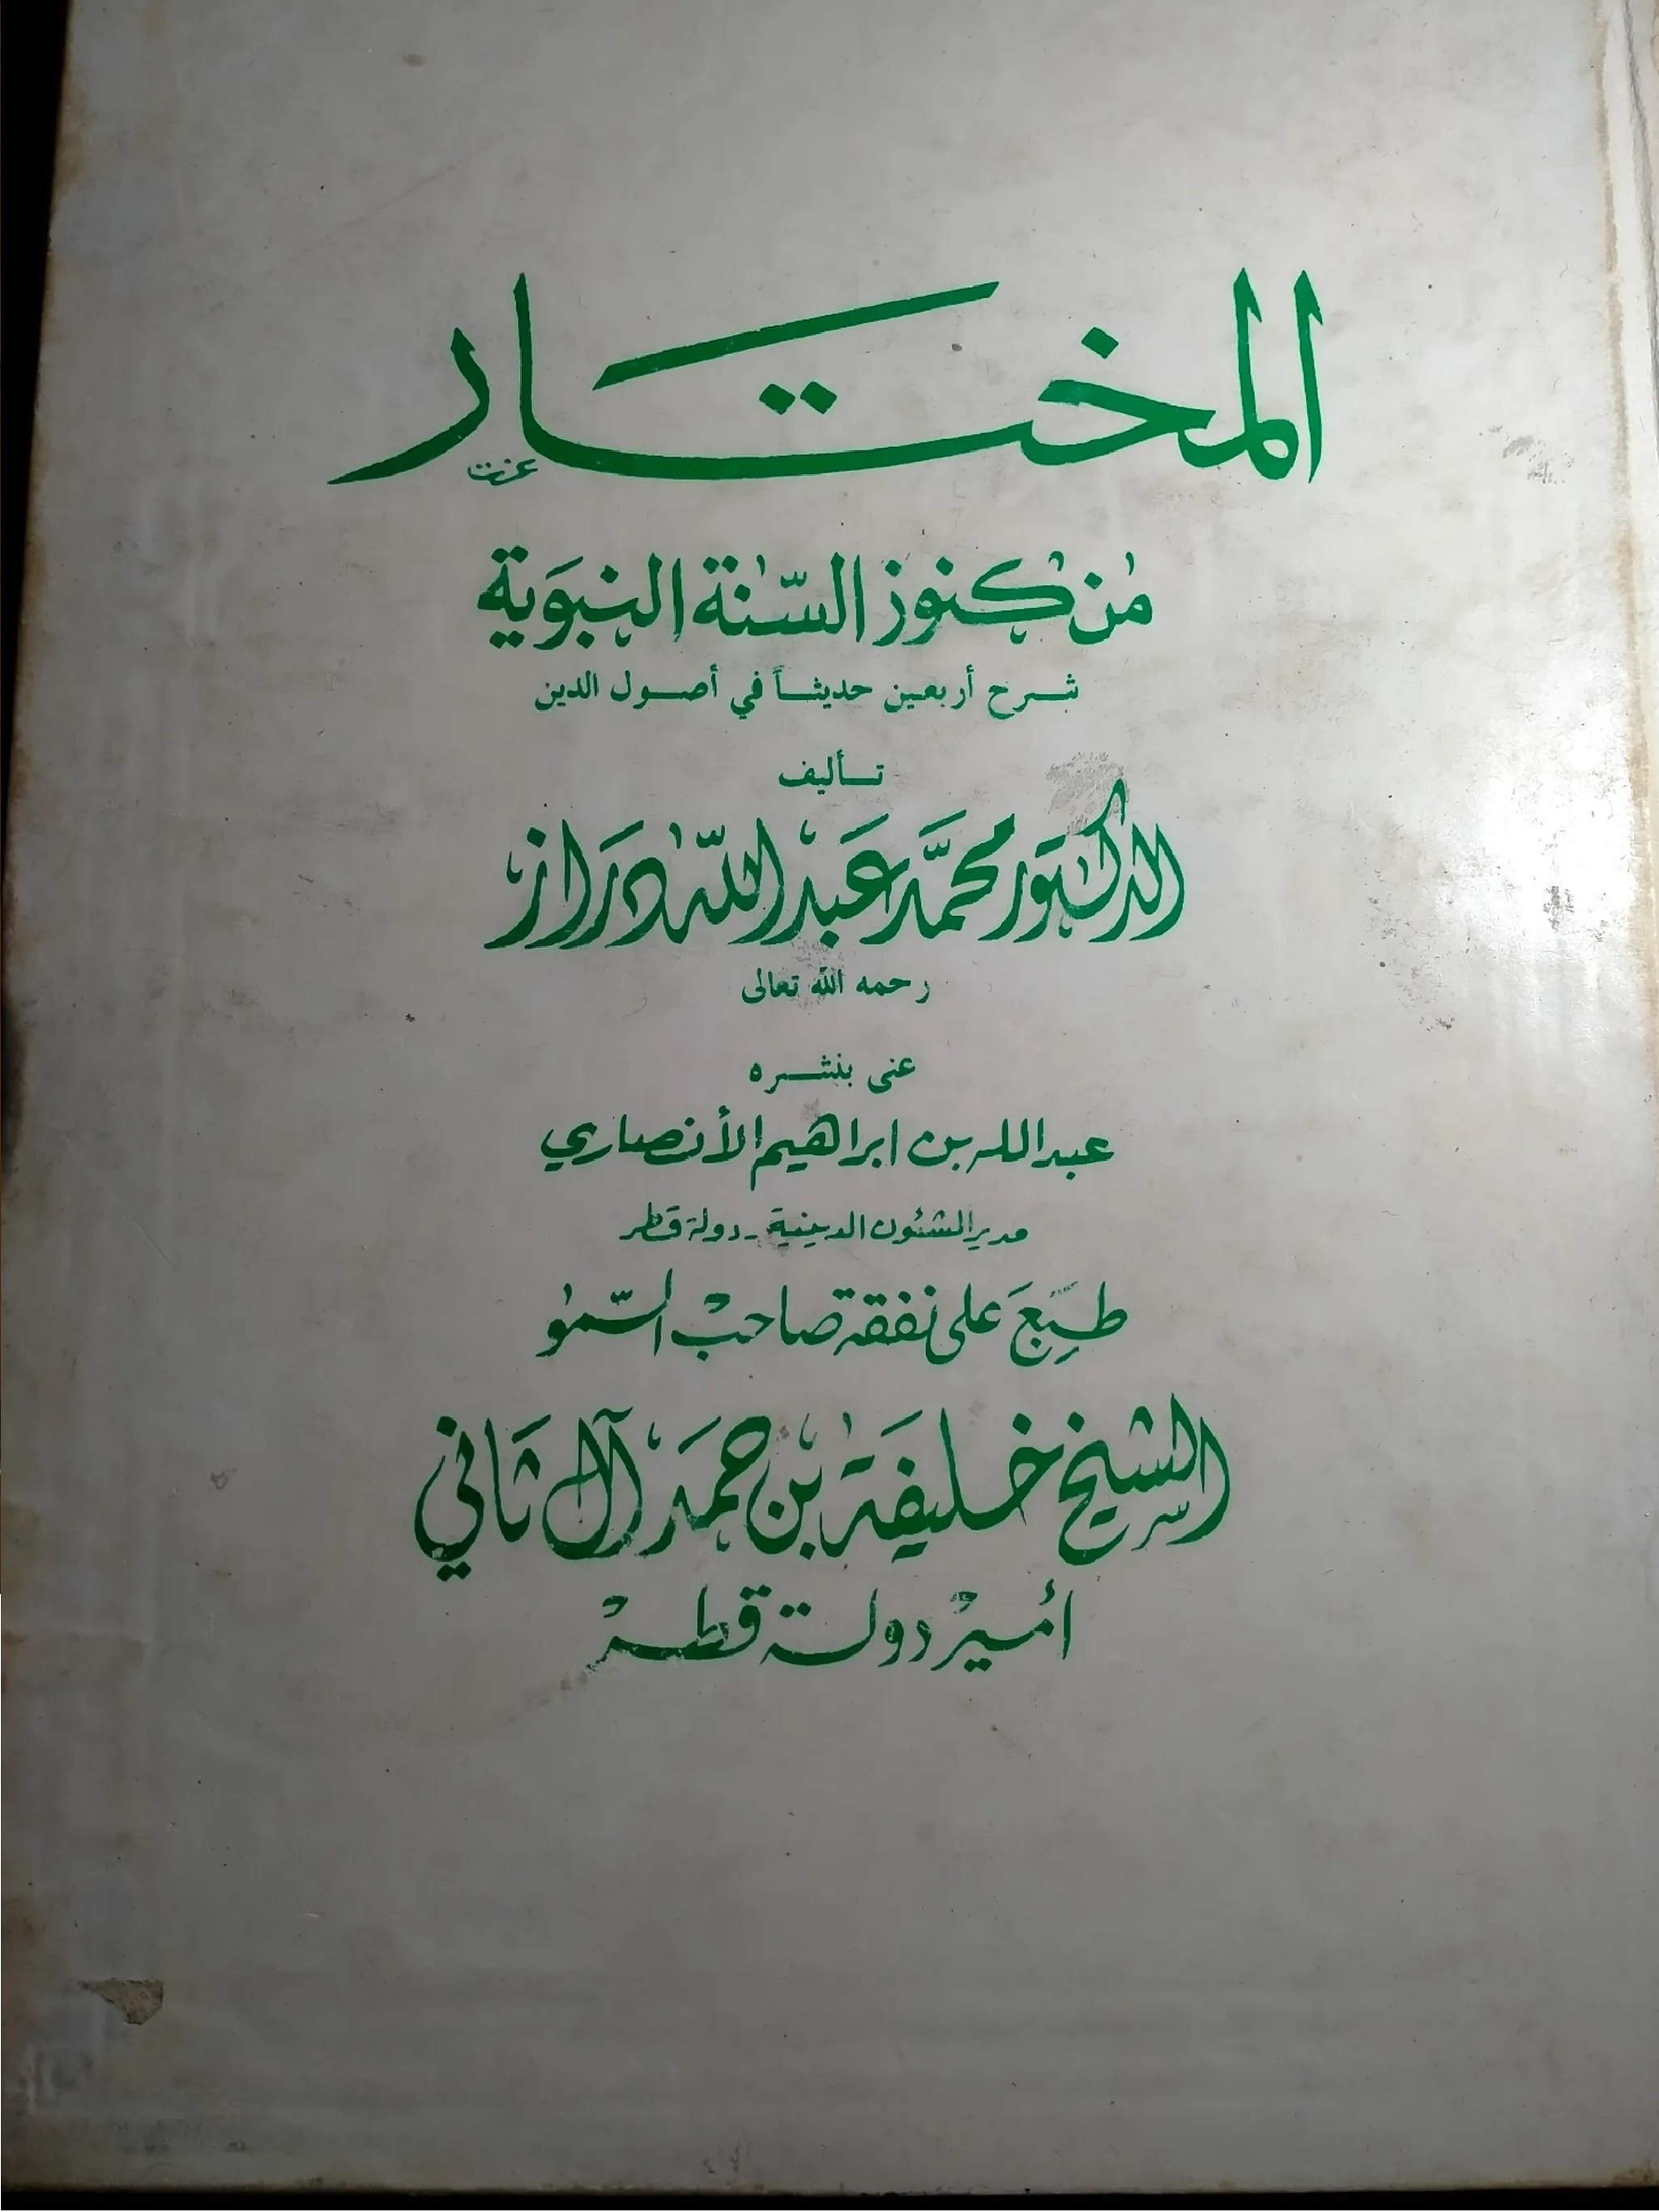 المختار
عزت
من كنوز السّنة النبَوية
شرح أربعين حديثاً في أصول الدين
تأليف
الدكتَور محمَّد عَبد اللّه دَراز
رحمه الله تعالى
عنى بنشره
عبد الله بن ابراهيم الأنصاري
مدير الشئون الدينية - دولة قطر
طبِعَ على نفقة صاحب السّمو
الشيخ خليفَة بن حمَد آل ثاني
أمير دولة قطر